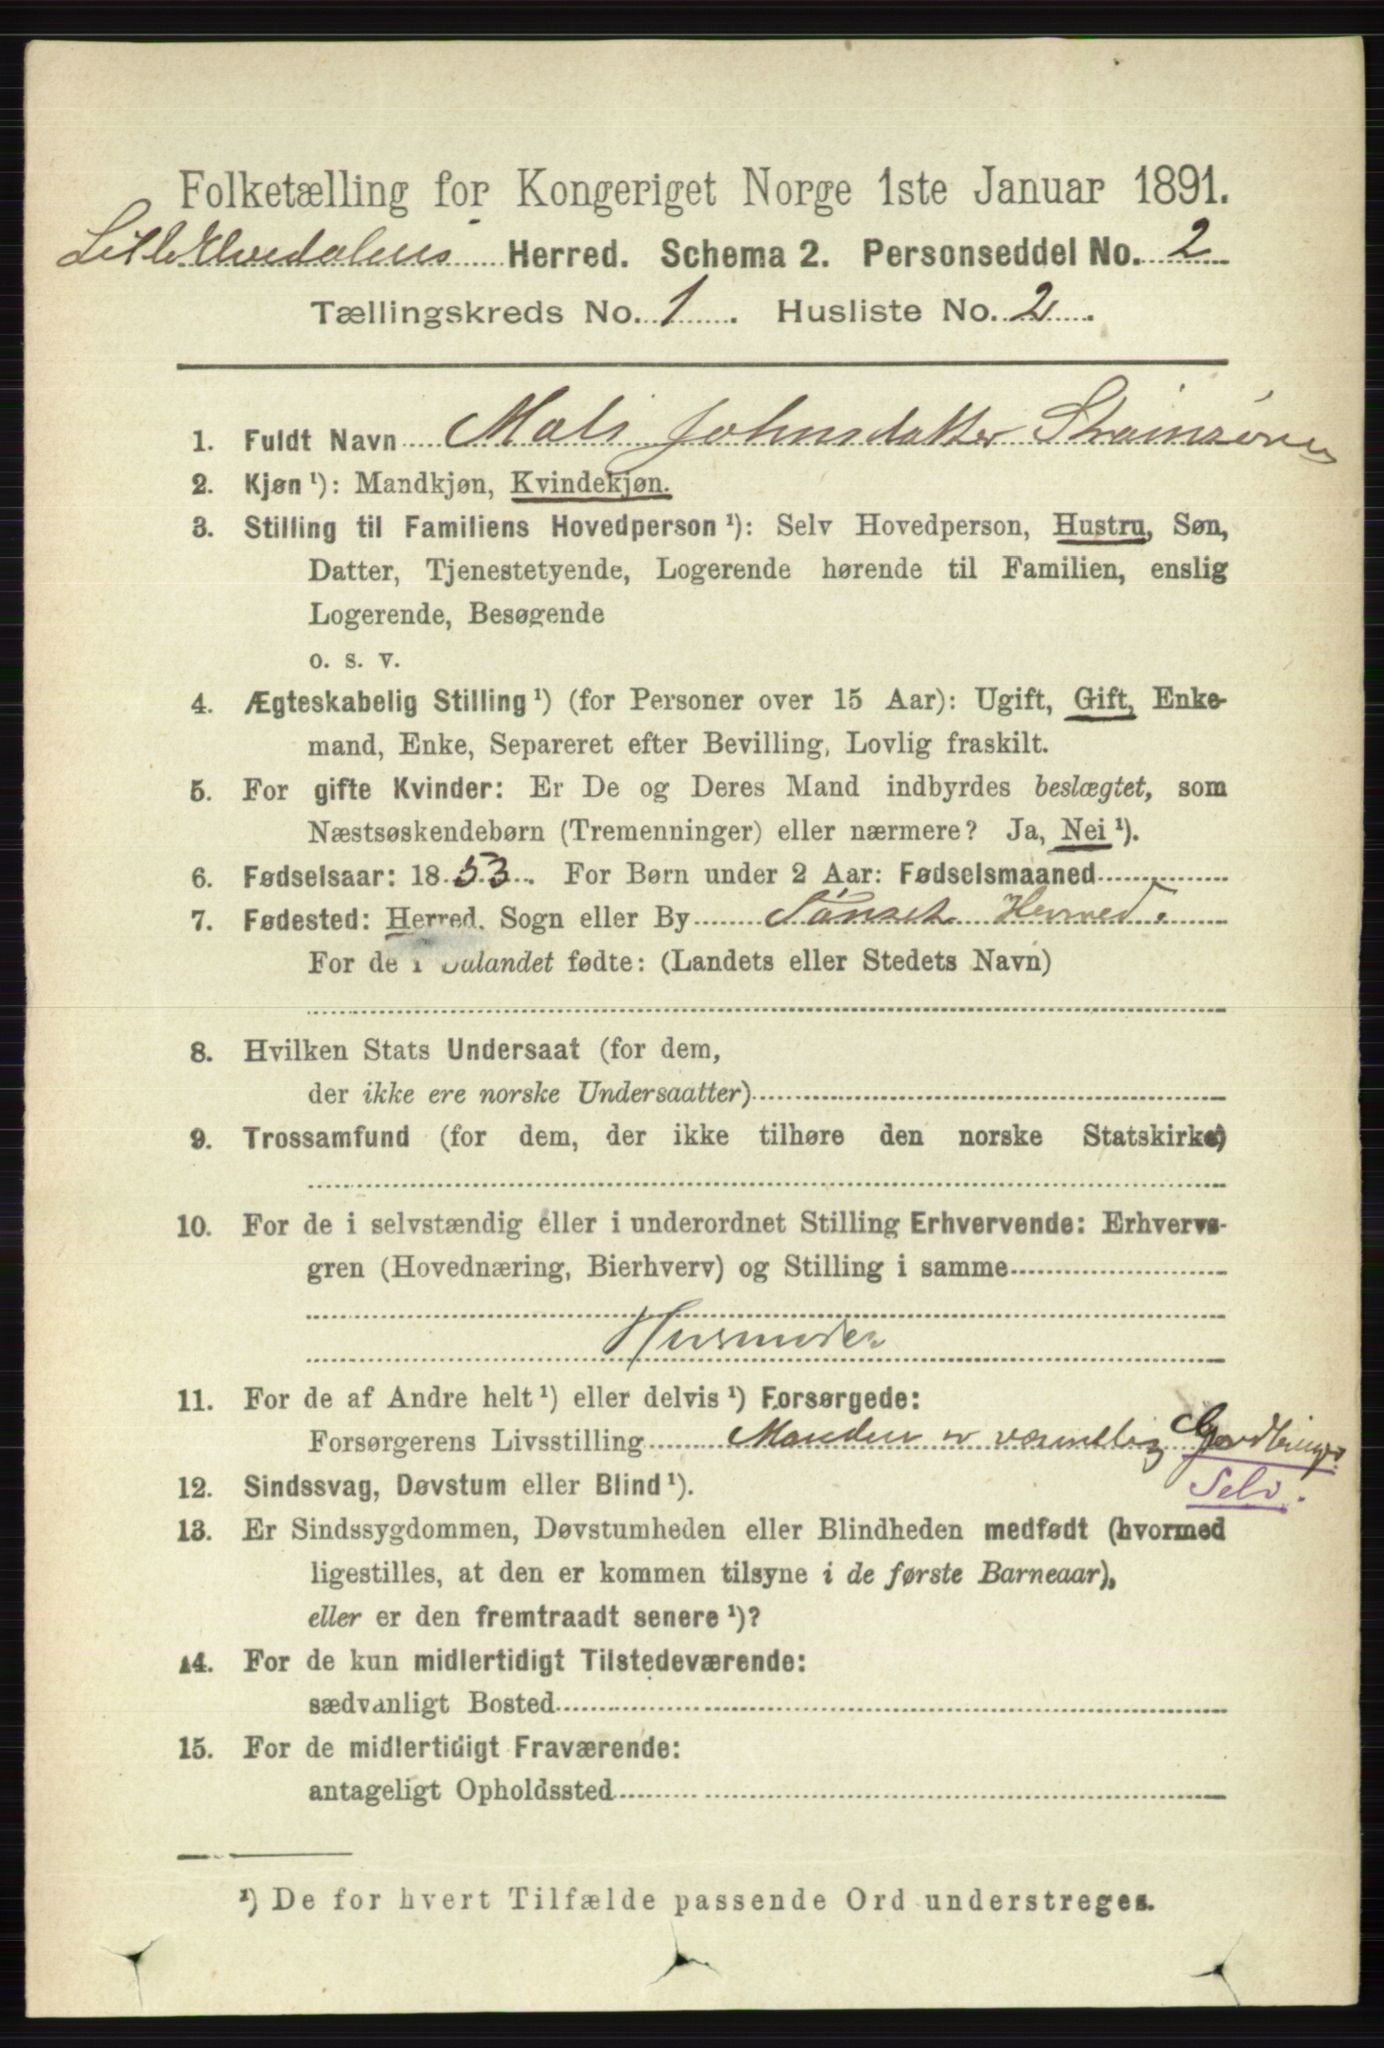 Folketælling for Kongeriget Norge 1ste Januar 1891.
Lille Elvedalens Herred. Schema 2. Personseddel No. 2
Tællingskreds No. 1. Husliste No. 2.
1. Fuldt Navn Mali Johnsdatter
2. Kjøn ¹): Mandkjøn, Kvindekjøn.
3. Stilling til Familiens Hovedperson ¹): Selv Hovedperson, Hustru, Søn,
Datter, Tjenestetyende, Logerende hørende til Familien, enslig
Logerende, Besøgende
o. s. v.
4. Ægteskabelig Stilling ¹) (for Personer over 15 Aar): Ugift, Gift, Enke-
mand, Enke, Separeret efter Bevilling, Lovlig fraskilt.
5. For gifte Kvinder: Er De og Deres Mand indbyrdes beslægtet, som
Næstsøskendebørn (Tremenninger) eller nærmere? Ja, Nei ¹).
6. Fødselsaar: 1853. For Børn under 2 Aar: Fødselsmaaned
7. Fødested: Herred, Sogn eller By Tønset Herred.
For de i Udlandet fødte: (Landets eller Stedets Navn)
8. Hvilken Stats Undersaat (for dem,
der ikke ere norske Undersaatter)
9. Trossamfund (for dem, der ikke tilhøre den norske Statskirke)
10. For de i selvstændig eller i underordnet Stilling Erhvervende: Erhvervs-
gren (Hovednæring, Bierhverv) og Stilling i samme
Husmoder
11. For de af Andre helt ¹) eller delvis ¹) Forsørgede:
Forsørgerens Livsstilling Manden er væsentlig Gardbruger
Selv.
12. Sindssvag, Døvstum eller Blind ¹).
13. Er Sindssygdommen, Døvstumheden eller Blindheden medfødt (hvormed
ligestilles, at den er kommen tilsyne i de første Barneaar),
eller er den fremtraadt senere ¹)?
14. For de kun midlertidigt Tilstedeværende:
sædvanligt Bosted
15. For de midlertidigt Fraværende:
antageligt Opholdssted
¹) De for hvert Tilfælde passende Ord understreges.